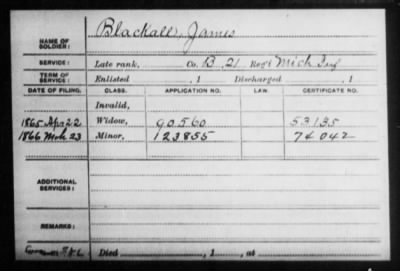 NAME OF SOLDIER: Blackall, James
SERVICE: Late rank, Co. B 21 Reg't Mich Inf
TERM OF SERVICE: Enlisted , 1 Discharged , 1
DATE OF FILING. CLASS. APPLICATION NO. LAW. CERTIFICATE NO.
Invalid,
1865 Apr 22 Widow, 90560 53135
1866 Mch 23 Minor, 123855 74042
ADDITIONAL SERVICES:
REMARKS:
Died , 1 , at